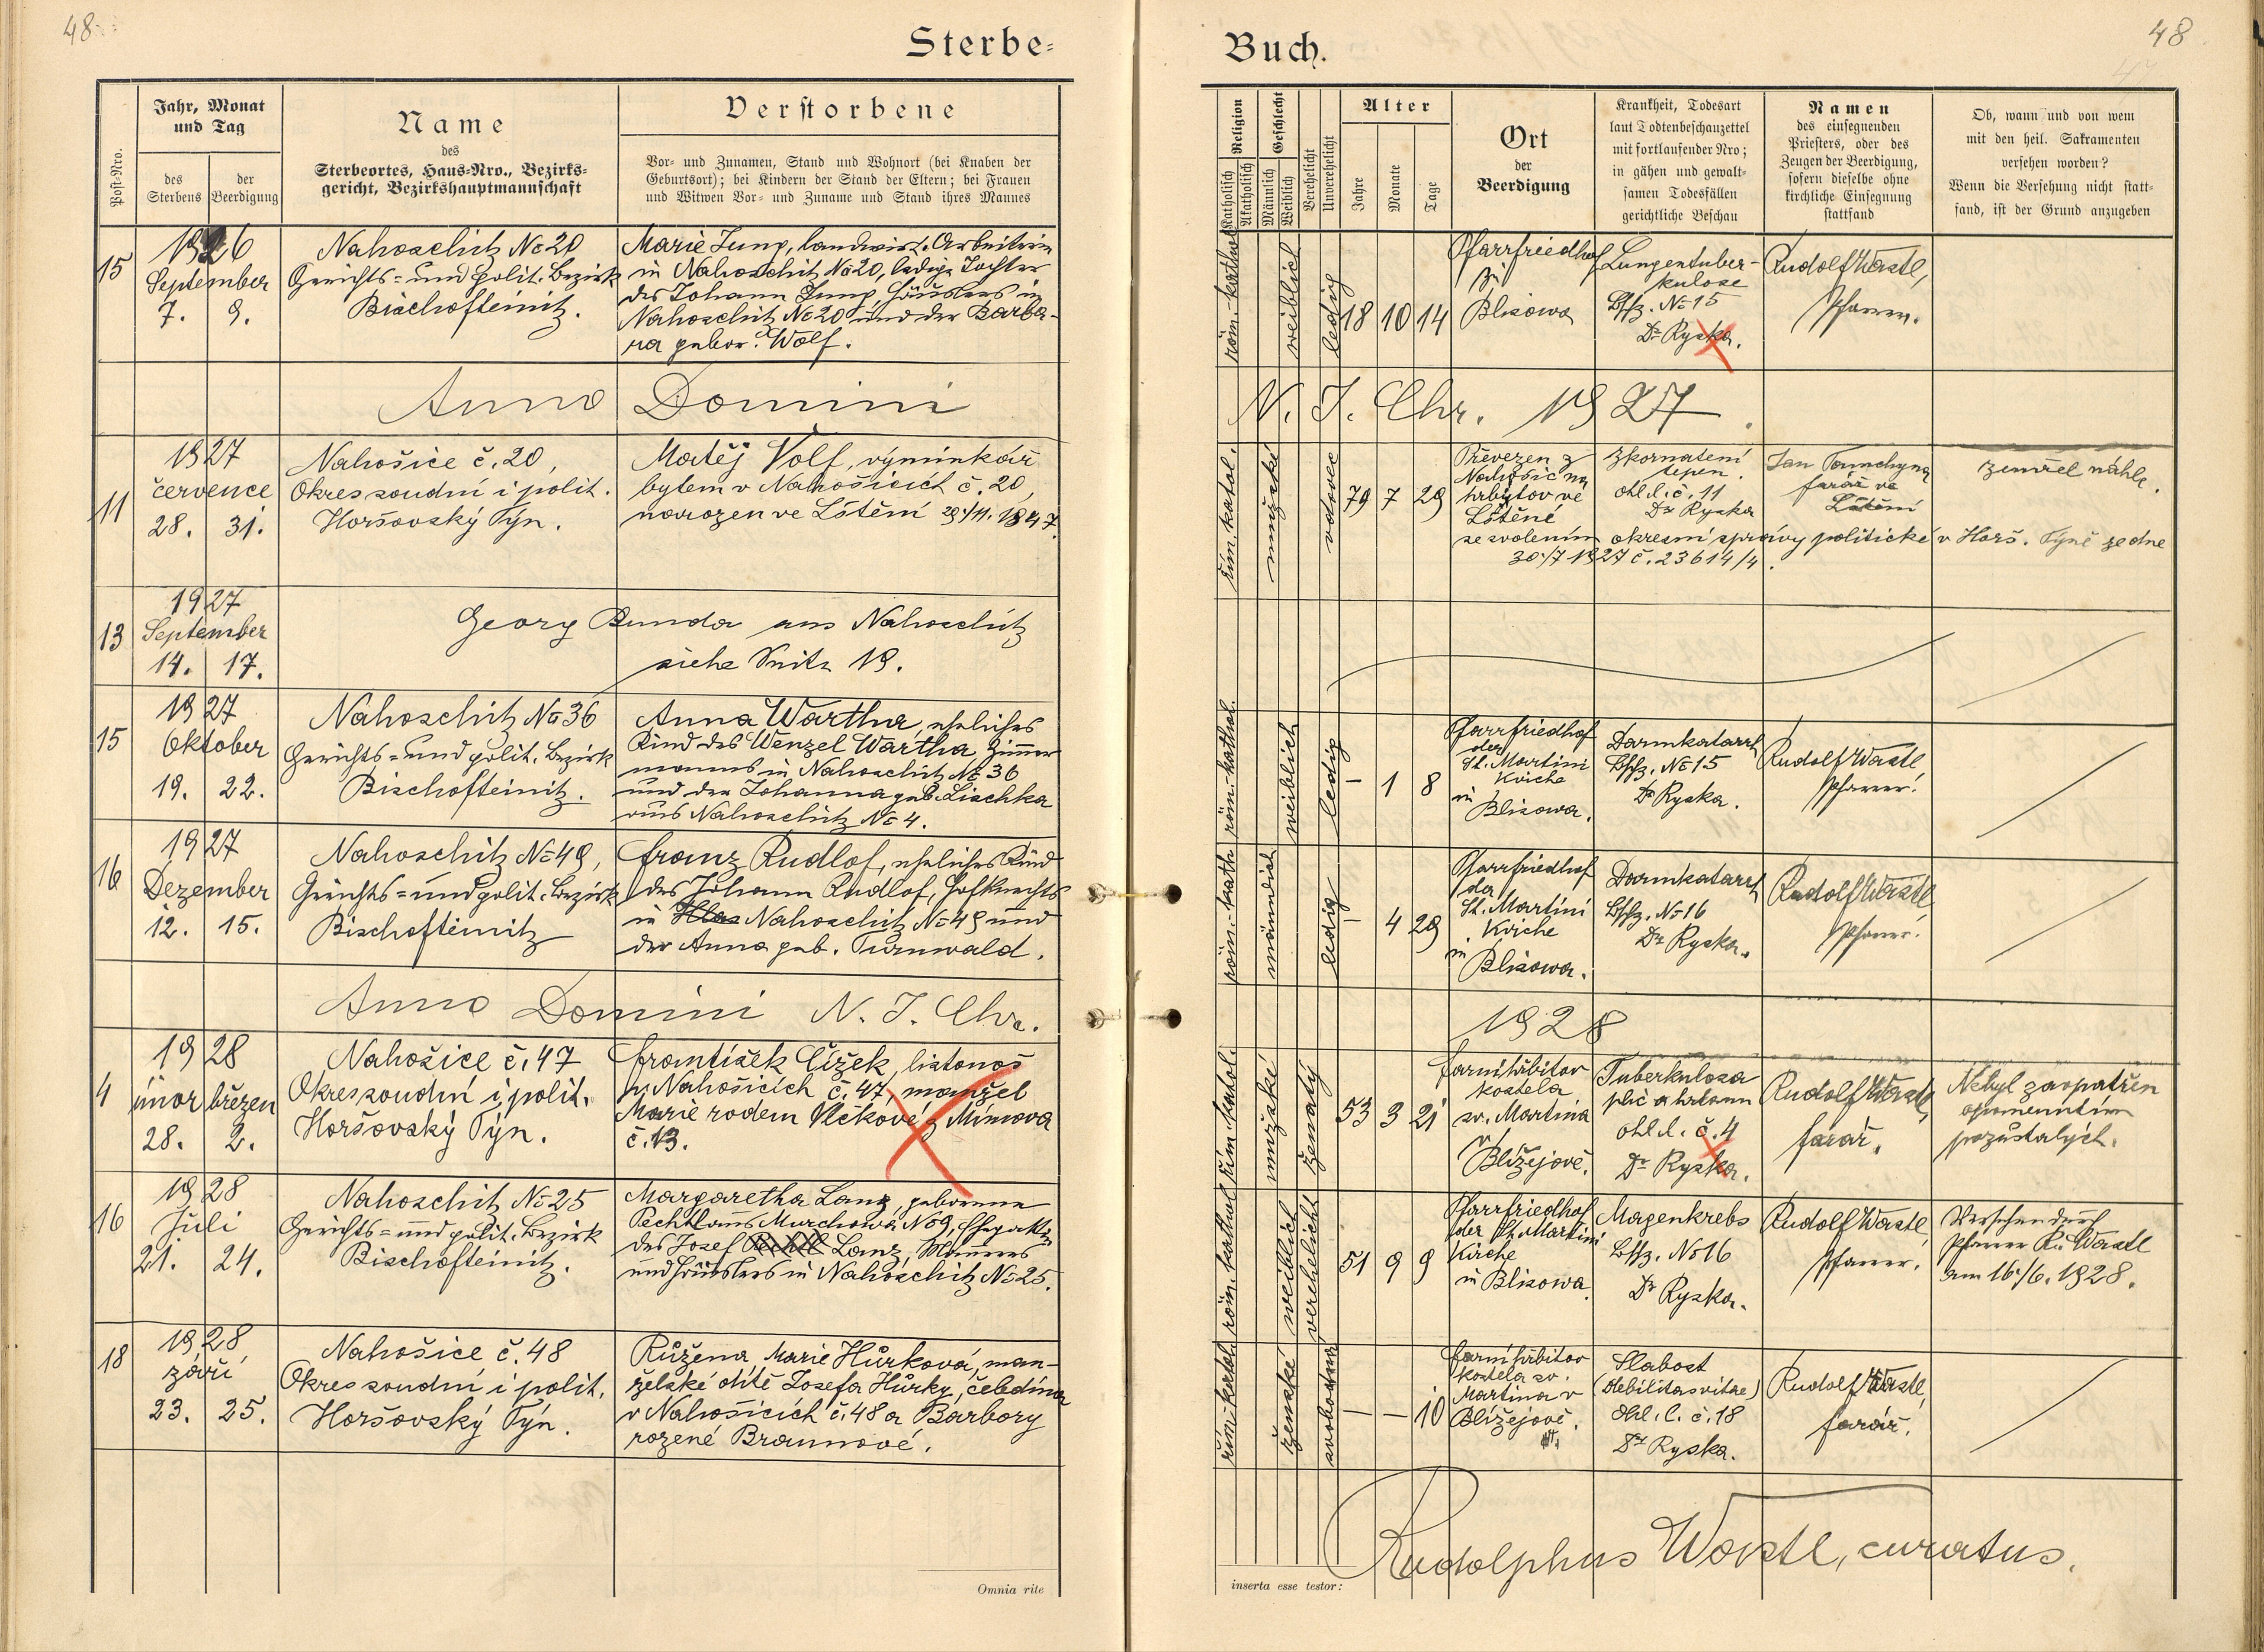 48
Sterbe-
Post-Nro.
Jahr, Monat
und Tag
des
Sterbens
der
Beerdigung
Name
des
Sterbeortes, Haus-Nro., Bezirks-
gericht, Bezirkshauptmannschaft
Verstorbene
Vor- und Zunamen, Stand und Wohnort (bei Knaben der
Geburtsort); bei Kindern der Stand der Eltern; bei Frauen
und Witwen Vor- und Zuname und Stand ihres Mannes
15
1926
September
7. 9.
Nahoschitz No 20
Gerichts- und polit. Bezirk
Bischofteinitz.
Marie Jung, landwirt. Arbeiterin
in Nahoschitz No 20, ledige Tochter
des Johann Jung, Häuslers in
Nahoschitz No 20 und der Barba-
ra gebor. Wolf.
Anno Domini
11
1927
července
28. 31.
Nahošice č. 20,
Okres soudní i polit.
Horšovský Týn.
Matěj Volf, výminkář
bytem v Nahošicích č. 20,
narozen ve Lštění 29./11. 1847.
13
1927
September
14. 17.
Georg Bunda aus Nahoschitz
siehe Seite 19.
15
1927
Oktober
19. 22.
Nahoschitz No 36
Gerichts- und polit. Bezirk
Bischofteinitz.
Anna Wartha, eheliches
Kind des Wenzel Wartha Zimmer
manns in Nahoschitz No 36
und der Johanna geb. Lischka
aus Nahoschitz No 4.
16
1927
Dezember
12. 15.
Nahoschitz No 49,
Gerichts- und polit. Bezirk
Bischofteinitz
Franz Rudlof, eheliches Kind
des Johann Rudlof, Hofknechts
in Nahoschitz No 49 und
der Anna geb. Turnwald.
Anno Domini N. J. Chr.
4
1928
únor březen
28. 2.
Nahošice č. 47
Okres soudní i polit.
Horšovský Týn.
František Čížek, listonoš
v Nahošicích č. 47, manžel
Marie rodem Vlčkové z Mimova
č. 13.
16
1928
Juli
21. 24.
Nahoschitz No 25
Gerichts- und polit. Bezirk
Bischofteinitz.
Margaretha Lang, geborene
Pechtl aus Murchowa No 9, Ehegattin
des Josef Lang, Maurers
und Häuslers in Nahoschitz No 25.
18
1928
září
23. 25.
Nahošice č. 48
Okres soudní i polit.
Horšovský Týn.
Růžena Marie Hůrková, man-
želské dítě Josefa Hůrky, čeledína
v Nahošicích č. 48 a Barbory
rozené Braunové.
Omnia rite
Buch.
48
47
Religion
Katholisch
Akatholisch
Geschlecht
Männlich
Weiblich
Verehelicht
Unverehelicht
Alter
Jahre
Monate
Tage
Ort
der
Beerdigung
Krankheit, Todesart
laut Todtenbeschauzettel
mit fortlaufender Nro;
in gähen und gewalt-
samen Todesfällen
gerichtliche Beschau
Namen
des einsegnenden
Priesters, oder des
Zeugen der Beerdigung,
sofern dieselbe ohne
kirchliche Einsegnung
stattfand
Ob, wann und von wem
mit den heil. Sakramenten
versehen worden?
Wenn die Versehung nicht statt-
fand, ist der Grund anzugeben
röm.-kathol.
weiblich
ledig
18 10 14
Pfarrfriedhof
zu
Blisowa
Lungentuber-
kulose
Bschz. No 15
Dr Ryska.
Rudolf Wastl,
Pfarrer.
N. J. Chr. 1927.
řím. katol.
mužské
vdovec
79 7 29
Převezen z
Nahošic na
hrbitov ve
Lštěně
Zkornatění
tepen.
ohl. l. č. 11
Dr Ryska
Jan Tomchyna
farář ve
Lštění
zemřel náhle.
se svolením okresní správy politické v Horš. Týně ze dne
30./7 1927 č. 23614/4.
röm.-kathol.
weiblich
ledig
– 1 8
Pfarrfriedhof
der
St. Martini
Kirche
in
Blisowa.
Darmkatarrh
Bschz. No 15
Dr Ryska.
Rudolf Wastl
Pfarrer.
röm.-kath
männlich
ledig
– 4 29
Pfarrfriedhof
der
St. Martini
Kirche
in
Blisowa.
Darmkatarrh
Bschz. No 16
Dr Ryska.
Rudolf Wastl
Pfarrer.
1928
řím. katol.
mužské
ženatý
53 3 21
farní hřbitov
kostela
sv. Martina
v
Blížejově.
Tuberkulosa
plic a hrtanu
ohl. l. č. 4
Dr Ryska.
Rudolf Wastl,
farář.
Nebyl zaopatřen
opomenutím
pozůstalých.
röm. kathol
weiblich
verehelicht
51 9 9
Pfarrfriedhof
der St. Martini
Kirche
in Blisowa.
Magenkrebs
Bschz. No 16
Dr Ryska.
Rudolf Wastl,
Pfarrer.
Versehen durch
Pfarrer R. Wastl
am 16./6. 1928.
řím. katol.
ženské
svobodná
– – 10
farní hřbitov
kostela sv.
Martina v
Blížejově.
Slabost
(debilitas vitae)
ohl. l. č. 18
Dr Ryska.
Rudolf Wastl,
farář.
inserta esse testor:
Rudolphus Wastl, curatus.